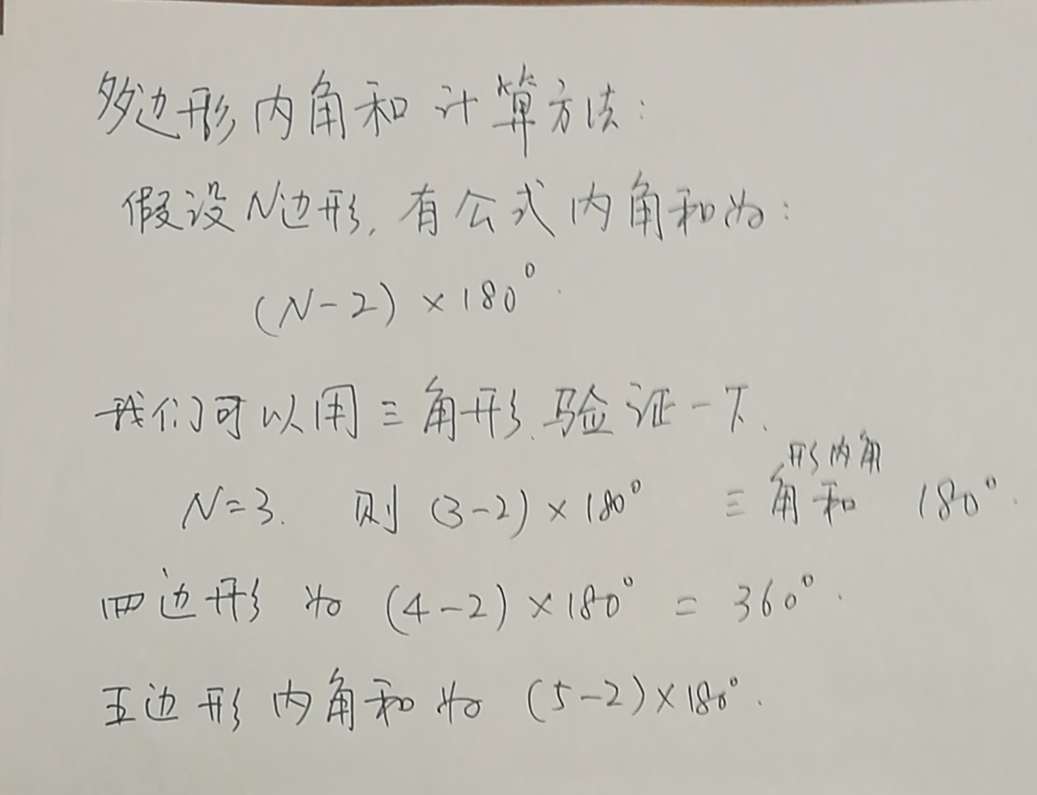 多边形内角和计算方法:
假设N边形, 有公式内角和为:
(N-2)×180°.
我们可以用三角形验证一下.
N=3. 则 (3-2)×180° 三角形内角和 180°.
四边形为 (4-2)×180° = 360°.
五边形内角和为 (5-2)×180°.